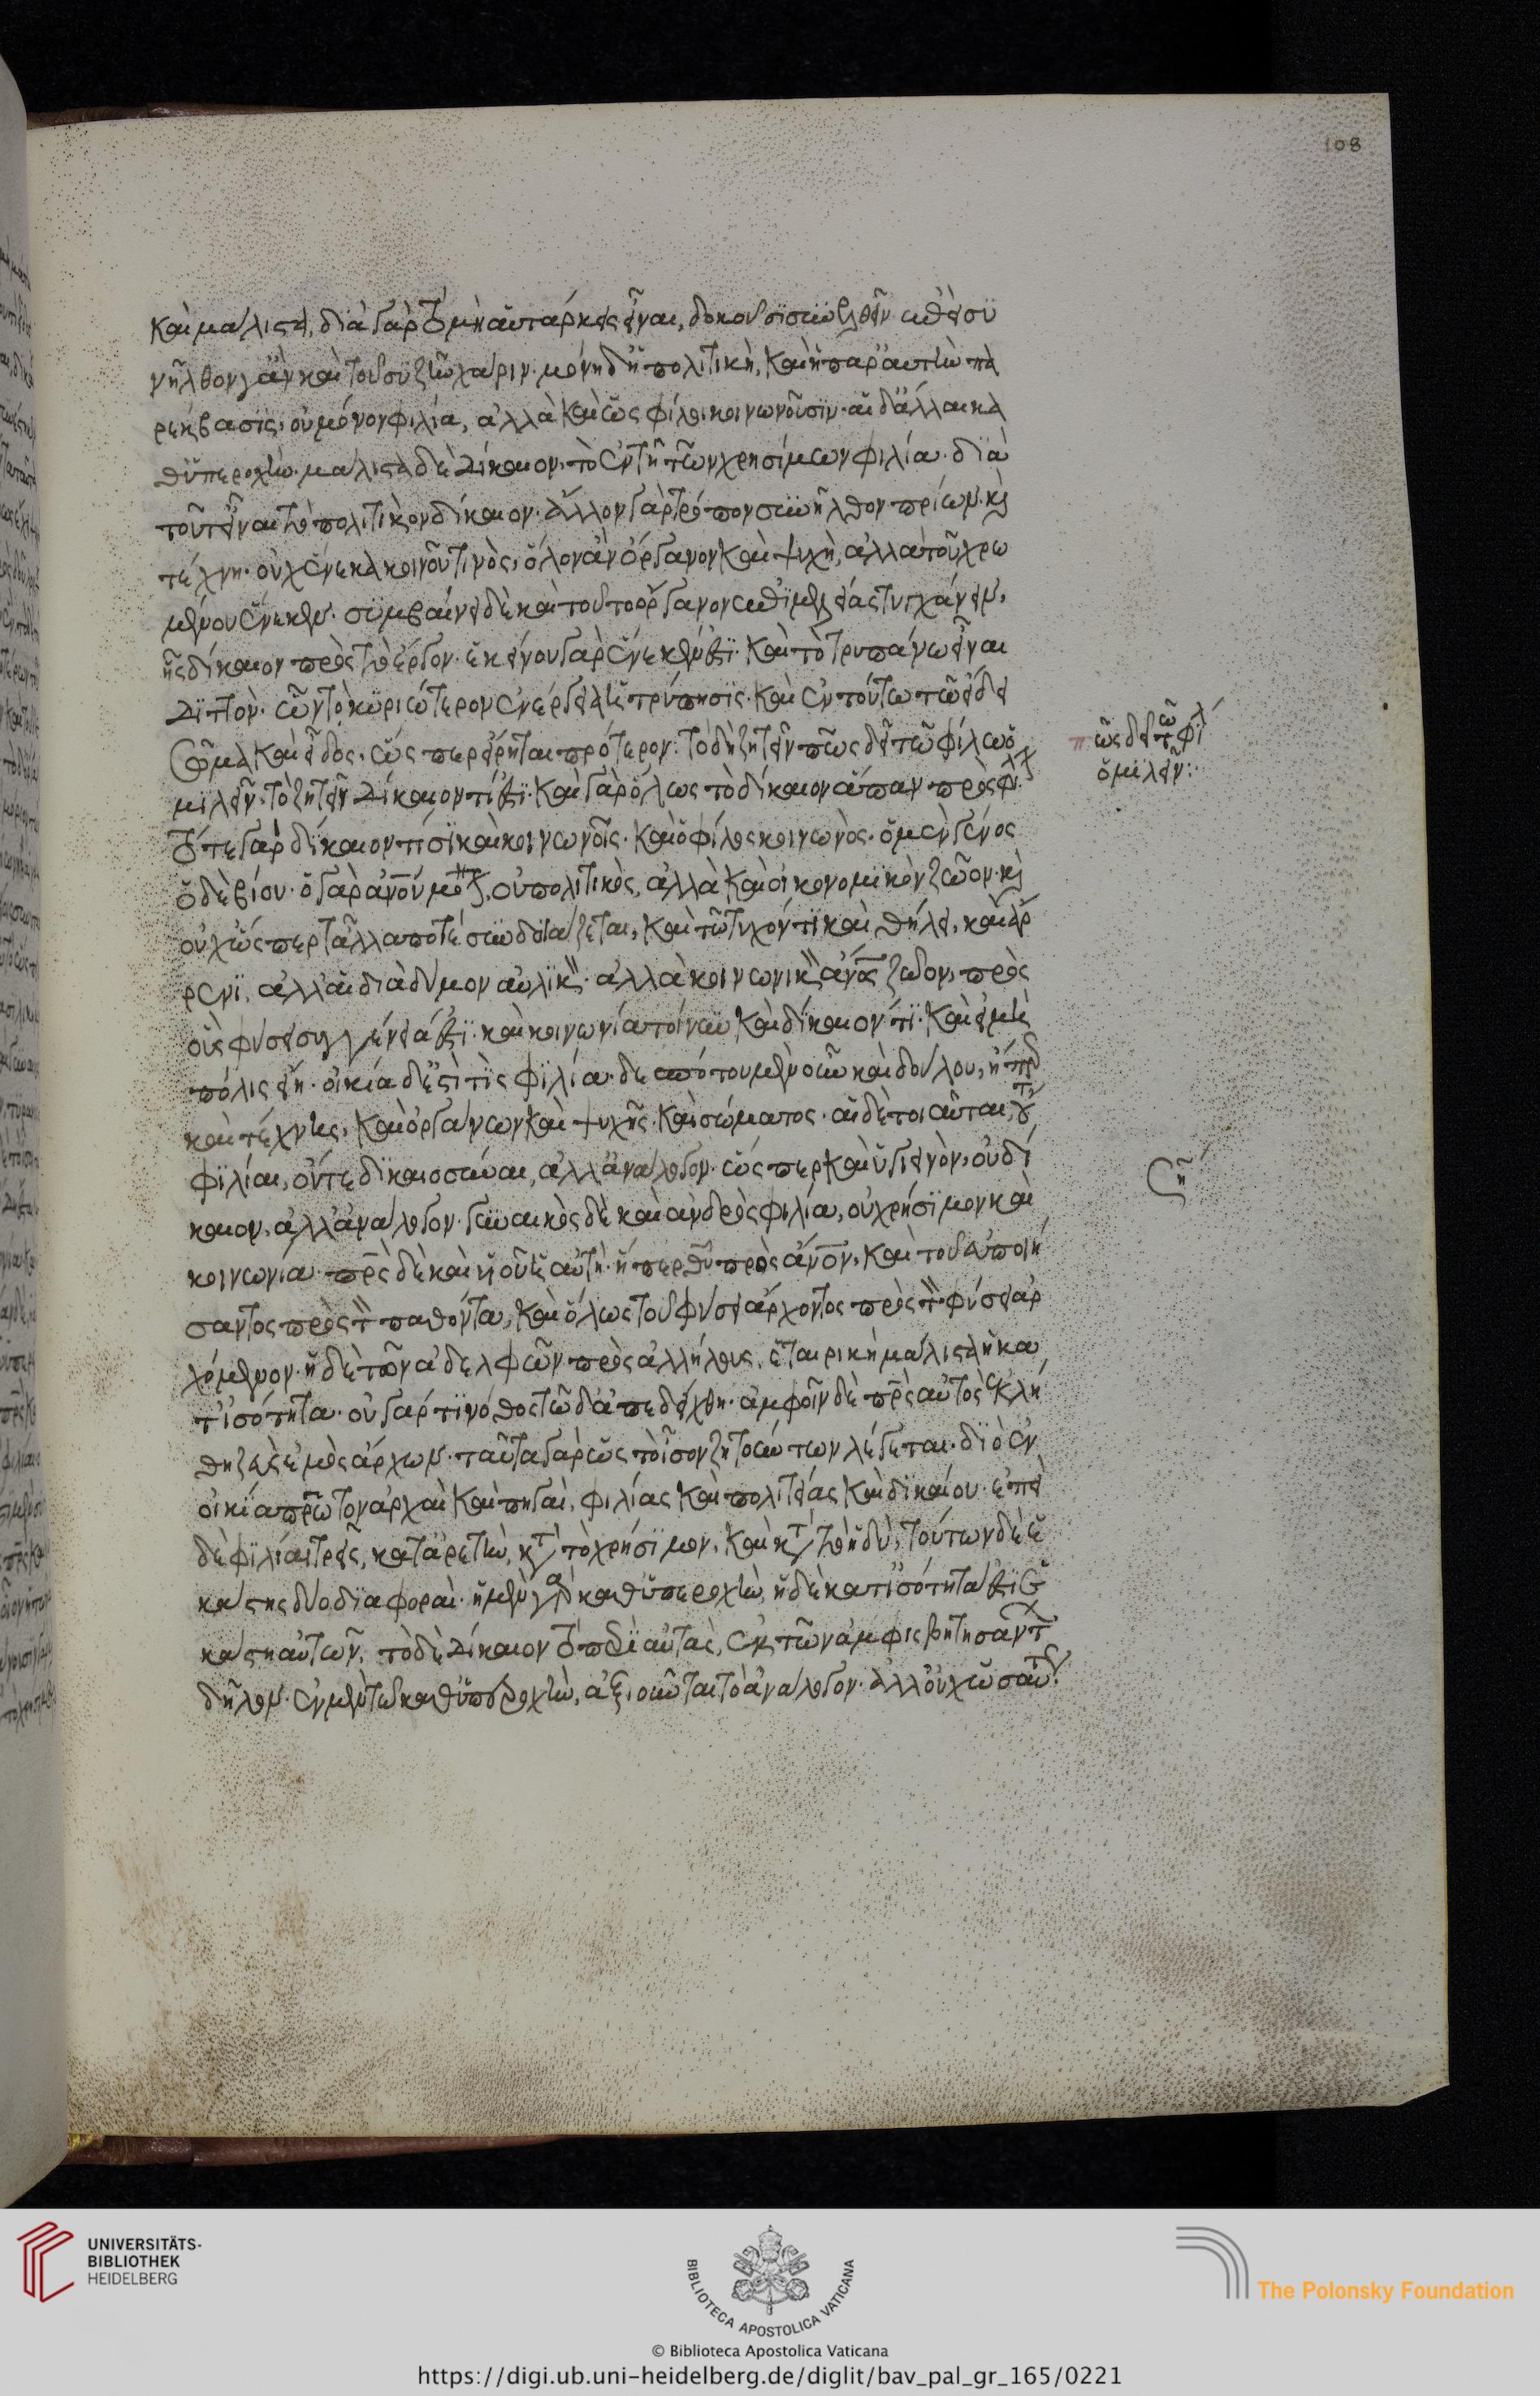 καὶ μάλιστα, διὰ γὰρ τὸ μὴ αὐτάρκες εἶναι, δοκοῦσϊ συνελθεῖν· ἐπεὶ συ
νῆλθον γ' ἂν καὶ τοῦ συζῆν χάριν· μόνη δ' ἡ πολιτικὴ, καὶ ἡ παρ' αὐτὴν πα
ρέκβασϊς, οὐ μόνον φιλία, ἀλλὰ καὶ ὡς φίλοι κοινωνοῦσϊν· αἱ δ' ἄλλαι κα
θ' ὑπεροχήν· μάλιστα δὲ δίκαιον, τὸ ἐν τῇ τῶν χρησίμων φιλία· διὰ
τοῦτ' εἶναι τὸ πολιτικὸν δίκαιον· ἄλλον γὰρ τρόπον συνῆλθον πρίων· καὶ
τέχνη· οὐχ ἕνεκα κοινοῦ τινὸς, ὅλον ἂν ὄργανον καὶ ψυχὴ, ἀλλὰ τοῦ χρω
μένου ἕνεκεν· συμβαίνει δὲ καὶ τοῦτο ὄργανον ἐπϊμελείας τυγχάνειν,
ἧς δίκαιον πρὸς τὸ ἔργον· ἐκείνου γὰρ ἕνεκέν ἐστϊ· καὶ τὸ τρυπάνω εἶναι
διττὸν· ὧν τὸ κυριώτερον ἐνέργεια ἡ τρύπησϊς· καὶ ἐν τούτω τῶ εἴδει
σῶμα καὶ εἶδος, ὥς περ εἴρηται πρότερον: τὸ δὴ ζητεῖν πῶς δεῖ τῶ φίλω ὁ
μϊλεῖν· τὸ ζητεῖν δίκαιον τί ἐστϊ· καὶ γὰρ ὅλως τὸ δίκαιον ἅπαν πρὸς φίλον·
τό τε γὰρ δίκαιόν τισϊ καὶ κοινωνοῖς· καὶ ὁ φίλος κοινωνὸς· ὁ μὲν γένος
ὁ δὲ βίου· ὁ γὰρ ἄνος οὐ μόνον, οὐ πολιτικὸς, ἀλλὰ καὶ οἰκονομϊκὸν ζῶον· καὶ
οὐχ ὥς περ τἄλλα ποτὲ συνδυάζεται, καὶ τῶ τυχόντϊ καὶ θήλει, καὶ ἄρ
ρενϊ, ἀλλ' αἱ διὰ δύμον αὐλϊκὸν· ἀλλὰ κοινωνικὸν ἄνος ζῶον, πρὸς
οὓς φύσει συγγένειά ἐστϊ· καὶ κοινωνία τοίνυν καὶ δίκαιόν τϊ· καὶ εἰ μὴ
πόλις εἴη· οἰκία δ' ἐστί τϊς φϊλία· δεσπότου μὲν οὖν καὶ δούλου, ἥπερ
καὶ τέχνης, καὶ ὀργάνων καὶ ψυχῆς καὶ σώματος· αἱ δὲ τοιαῦται, οὔτε
φϊλίαι, οὔτε δϊκαιοσύναι, ἀλλ' ἀνάλογον· ὥς περ καὶ ὑγιεινὸν, οὐ δί
καιον, ἀλλ' ἀνάλογον· γυναικὸς δὲ καὶ ἀνδρὸς φιλία, οὐ χρήσϊμον καὶ
κοινωνία· πρὸς δὲ καὶ υἱοῦ ἡ αὐτὴ· ἥπερ θεοῦ πρὸς ἄνον, καὶ τοῦ εὖ ποιή
σαντος πρὸς τὸν παθόντα, καὶ ὅλως τοῦ φύσει ἄρχοντος πρὸς τὸν φύσει ἀρ
χόμενον· ἡ δὲ τῶν ἀδελφῶν πρὸς ἀλλήλους, ἑταιρικὴ μάλιστα ἡ κα
τ' ἰσότητα· οὐ γάρ τϊ νόθος τῶδ' ἀπεδείχθη· ἀμφοῖν δὲ πρὸς αὐτὸς ἐκλή
θη ζεὺς ἐμὸς ἄρχων· ταῦτα γὰρ ὡς τὸ ἶσον ζητούντων λέγεται· διὸ ἐν
οἰκία πρῶτον ἀρχαὶ καὶ πηγαὶ, φιλίας καὶ πολιτείας καὶ δϊκαίου· ἐπεὶ
δὲ φϊλίαι τρεῖς, κατ' ἀρετὴν, κατὰ τὸ χρήσϊμον, καὶ κατὰ τὸ ἡδὺ, τούτων δὲ ἑ
κάστης δύο δϊαφοραὶ· ἡ μὲν γὰρ καθ' ὑπεροχὴν, ἡ δὲ κατ' ἰσότητά ἐστϊν ἑ
κάστη αὐτῶν, τὸ δὲ δίκαιον τὸ περὶ αὐτὰς, ἐκ τῶν ἀμφισβητησάντων
δῆλον· ἐν μὲν τῶ καθ' ὑπεροχὴν, ἀξιοῦται τὸ ἀνάλογον· ἀλλ' οὐχ ὡσαύτως·
πῶς δεῖ τῶ φίλω
ὁμϊλεῖν:
ση
108
UNIVERSITÄTS-
BIBLIOTHEK
HEIDELBERG
BIBLIOTECA APOSTOLICA VATICANA
The Polonsky Foundation
© Biblioteca Apostolica Vaticana
https://digi.ub.uni-heidelberg.de/diglit/bav_pal_gr_165/0221